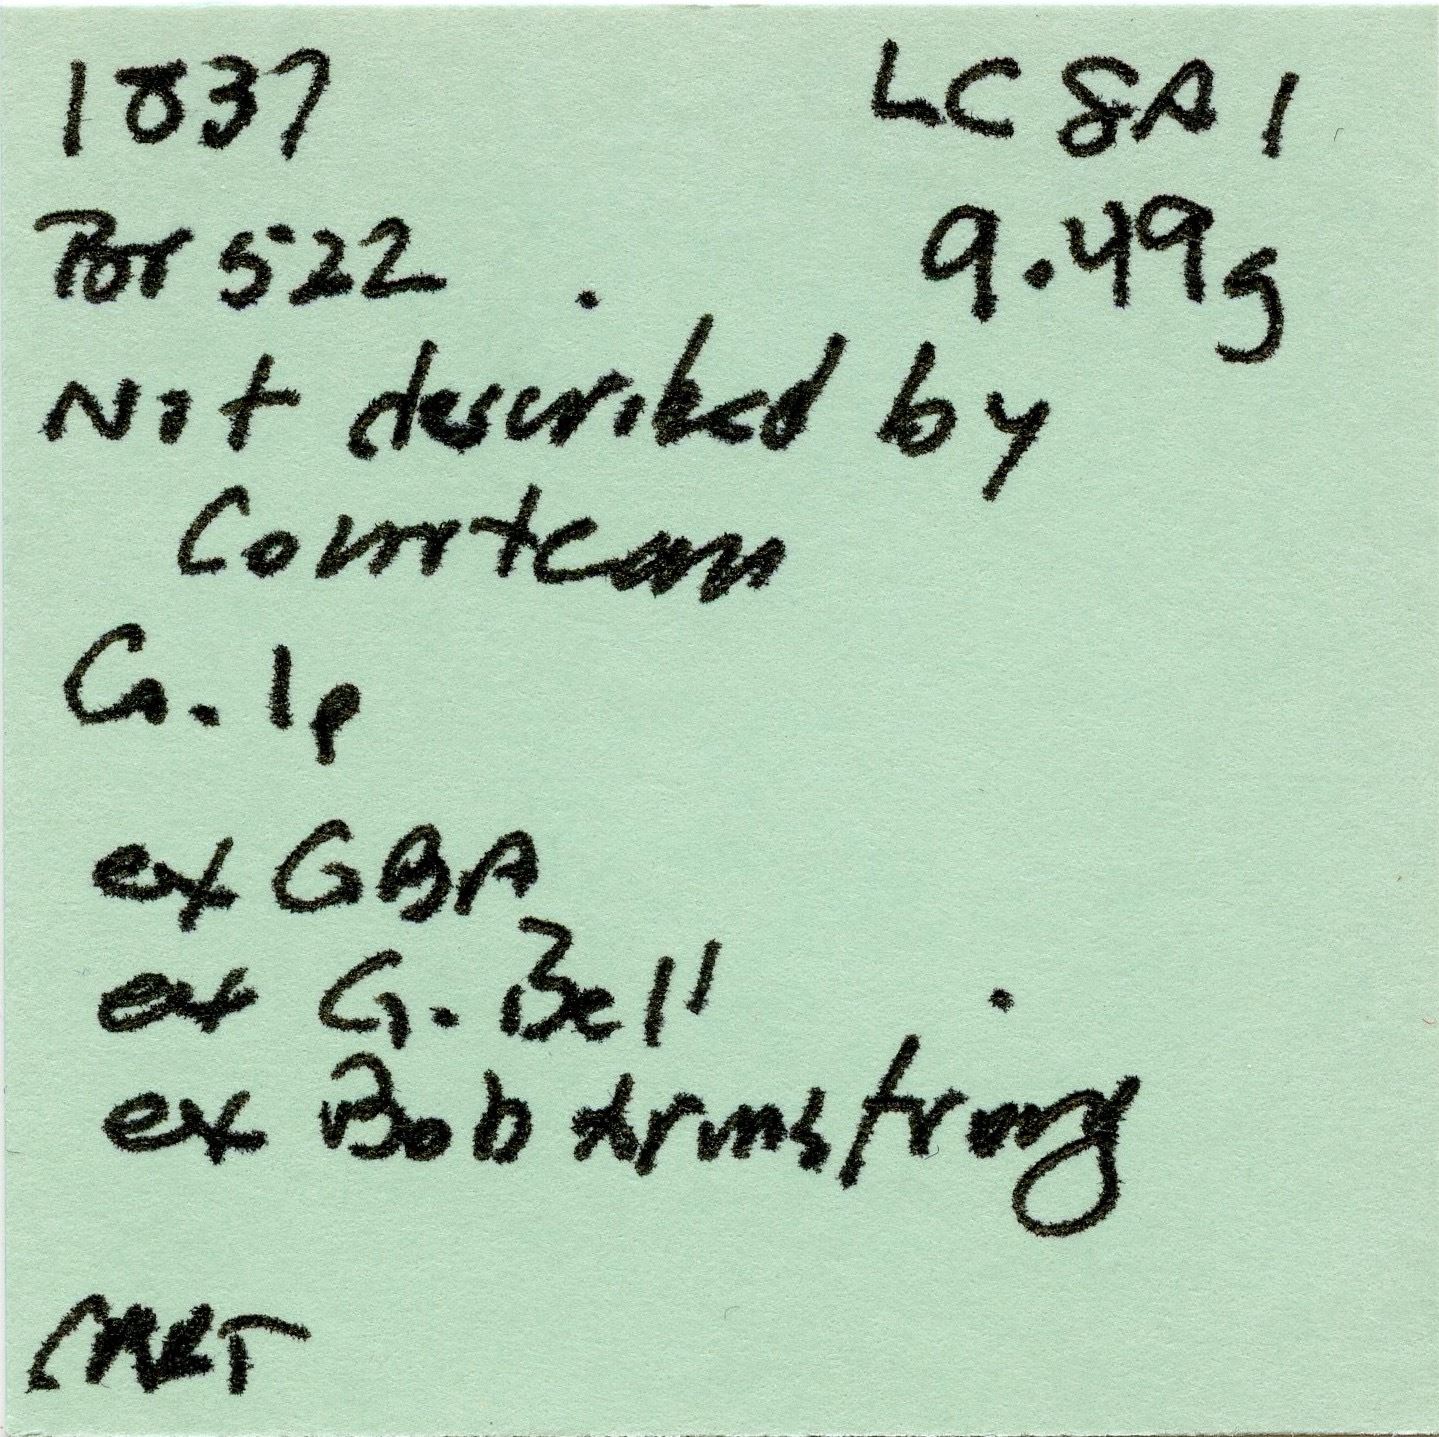 1837 LC 8A1
Por 522 9.49g
Not described by
Courteau
Co. 1p
ex GBA
ex G. Bell
ex Bob Armstrong